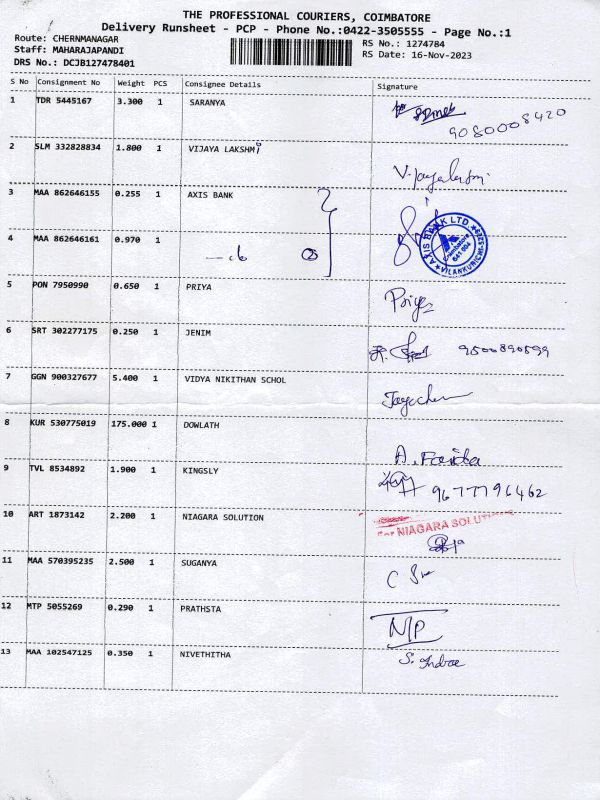 THE PROFESSIONAL COURIERS, COIMBATORE
Delivery Runsheet - PCP - Phone No.:0422-3505555 - Page No.:1
Route: CHERNMANAGAR
Staff: MAHARAJAPANDI
DRS No.: DCJB127478401
RS No.: 1274784
RS Date: 16-Nov-2023
S No Consignment No Weight PCS Consignee Details Signature
1 TDR 5445167 3.300 1 SARANYA
9080008420
2 SLM 332828834 1.800 1 VIJAYA LAKSHMi
Vijayalaxmi
3 MAA 862646155 0.255 1 AXIS BANK
4 MAA 862646161 0.970 1
AXIS BANK LTD.
Coimbatore
641 004
5 PON 7950990 0.650 1 PRIYA
Priya
6 SRT 302277175 0.250 1 JENIM
9500890599
7 GGN 900327677 5.400 1 VIDYA NIKITHAN SCHOL
8 KUR 530775019 175.000 1 DOWLATH
A. Farida
9 TVL 8534892 1.900 1 KINGSLY
9677796462
10 ART 1873142 2.200 1 NIAGARA SOLUTION
For NIAGARA SOLUTIONS
11 MAA 570395235 2.500 1 SUGANYA
12 MTP 5055269 0.290 1 PRATHSTA
13 MAA 102547125 0.350 1 NIVETHITHA